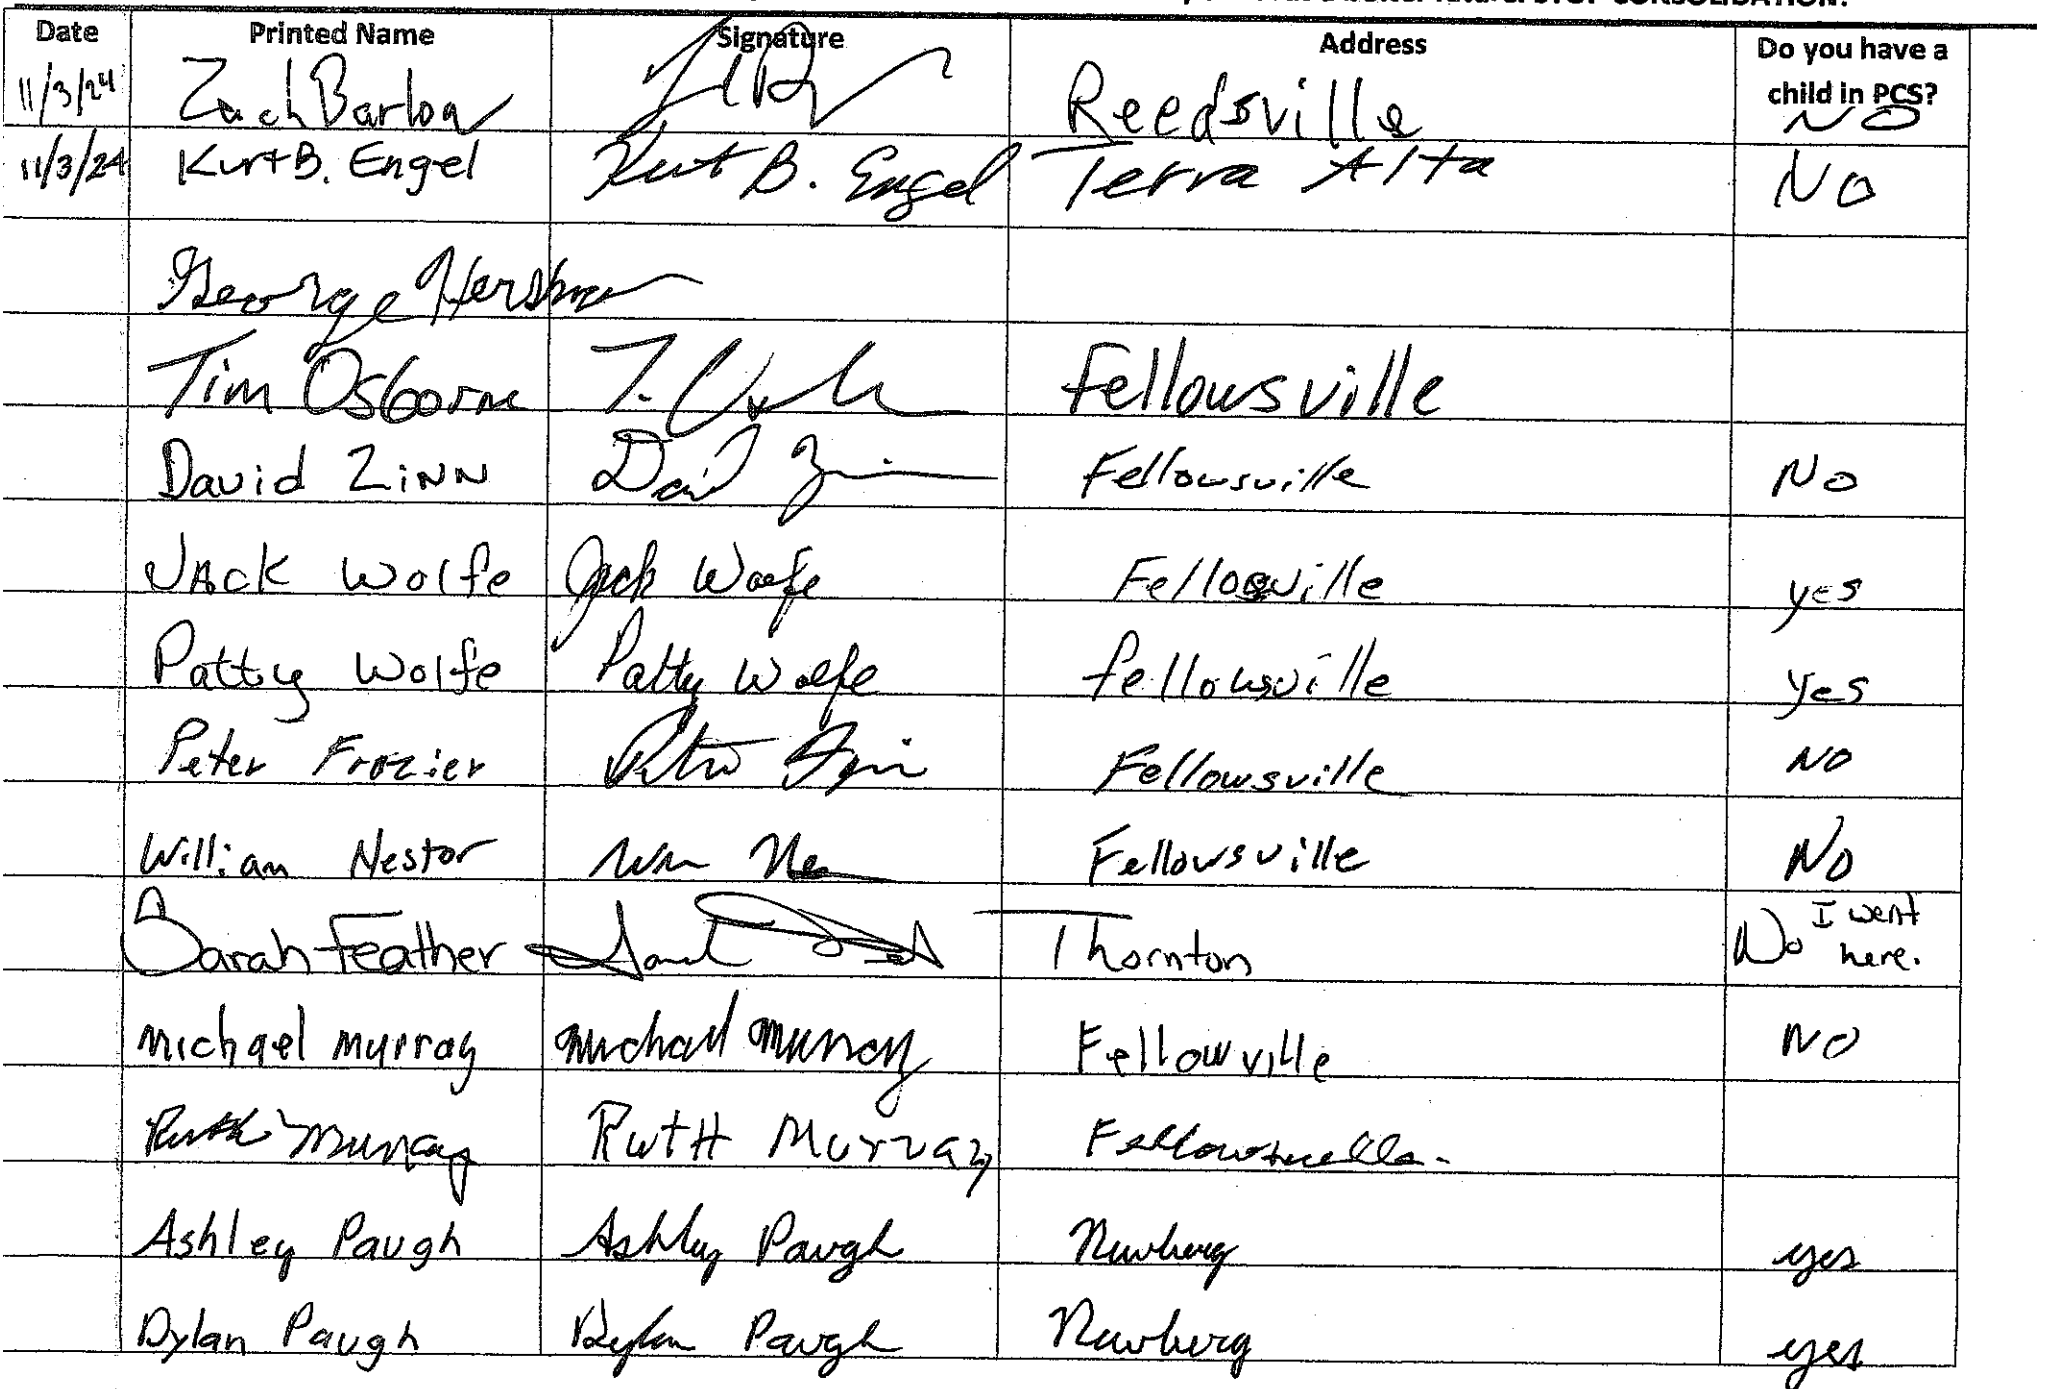 STOP CONSOLIDATION!
Date Printed Name Signature Address Do you have a child in PCS?
11/3/24 Zach Barlow Reedsville NO
11/3/24 Kurt B. Engel Kurt B. Engel Terra Alta NO
George Hershman
Tim Osborne T. Fellowsville
David ZINN David Zinn Fellowsville No
JACK Wolfe Jack Wolfe Fellowsville yes
Patty Wolfe Patty Wolfe fellowsville yes
Peter Frazier Fellowsville NO
William Nestor Wm Fellowsville No
Sarah Feather Sarah Thornton No I went here.
Michael Murray Michael Murray Fellowville NO
Ruth Murray RutH Murray
Ashley Paugh Ashley Paugh Newberg yes
Dylan Paugh Dylan Paugh Newberg yes